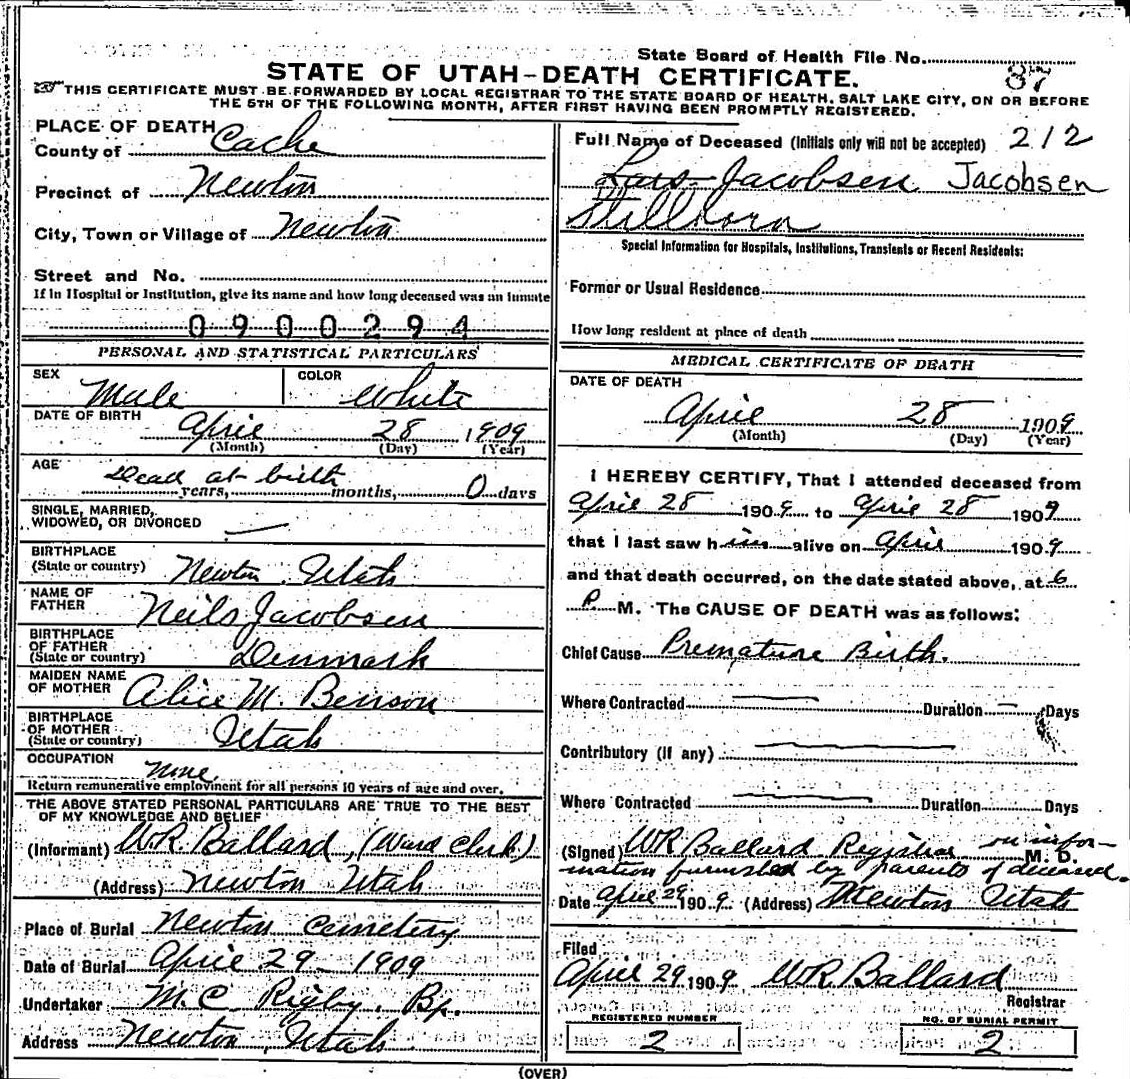 State Board of Health File No.
STATE OF UTAH-DEATH CERTIFICATE.
87
THIS CERTIFICATE MUST BE FORWARDED BY LOCAL REGISTRAR TO THE STATE BOARD OF HEALTH, SALT LAKE CITY, ON OR BEFORE
THE 5TH OF THE FOLLOWING MONTH, AFTER FIRST HAVING BEEN PROMPTLY REGISTERED.
PLACE OF DEATH
County of Cache
Precinct of Newton
City, Town or Village of Newton
Street and No.
If in Hospital or Institution, give its name and how long deceased was an inmate
0900294
PERSONAL AND STATISTICAL PARTICULARS
SEX Male COLOR White
DATE OF BIRTH
April 28 1909
(Month) (Day) (Year)
AGE Dead at birth
years, months, 0 days
SINGLE, MARRIED,
WIDOWED, OR DIVORCED
BIRTHPLACE
(State or country) Newton Utah
NAME OF
FATHER Neils Jacobsen
BIRTHPLACE
OF FATHER
(State or country) Denmark
MAIDEN NAME
OF MOTHER Alice M. Benson
BIRTHPLACE
OF MOTHER
(State or country) Utah
OCCUPATION None
Return remunerative employment for all persons 10 years of age and over.
THE ABOVE STATED PERSONAL PARTICULARS ARE TRUE TO THE BEST
OF MY KNOWLEDGE AND BELIEF
(Informant) W.R. Ballard, (Ward Clerk)
(Address) Newton Utah
Place of Burial Newton Cemetery
Date of Burial April 29 - 1909
Undertaker M.C. Rigby, Bp.
Address Newton, Utah
Full Name of Deceased (Initials only will not be accepted) 212
Lars Jacobsen Jacobsen
Stillborn
Special Information for Hospitals, Institutions, Transients or Recent Residents:
Former or Usual Residence
How long resident at place of death
MEDICAL CERTIFICATE OF DEATH
DATE OF DEATH
April 28 1909
(Month) (Day) (Year)
I HEREBY CERTIFY, That I attended deceased from
April 28 1909 to April 28 1909
that I last saw h im alive on April 1909
and that death occurred, on the date stated above, at 6
P. M. The CAUSE OF DEATH was as follows:
Chief Cause Premature Birth.
Where Contracted Duration Days
Contributory (if any)
Where Contracted Duration Days
(Signed) WR Ballard Registrar on infor-
M. D.
mation furnished by parents of deceased.
Date April 29 1909 (Address) Newton Utah
Filed
April 29 1909, WR Ballard
Registrar
REGISTERED NUMBER
2
NO. OF BURIAL PERMIT
2
(OVER)